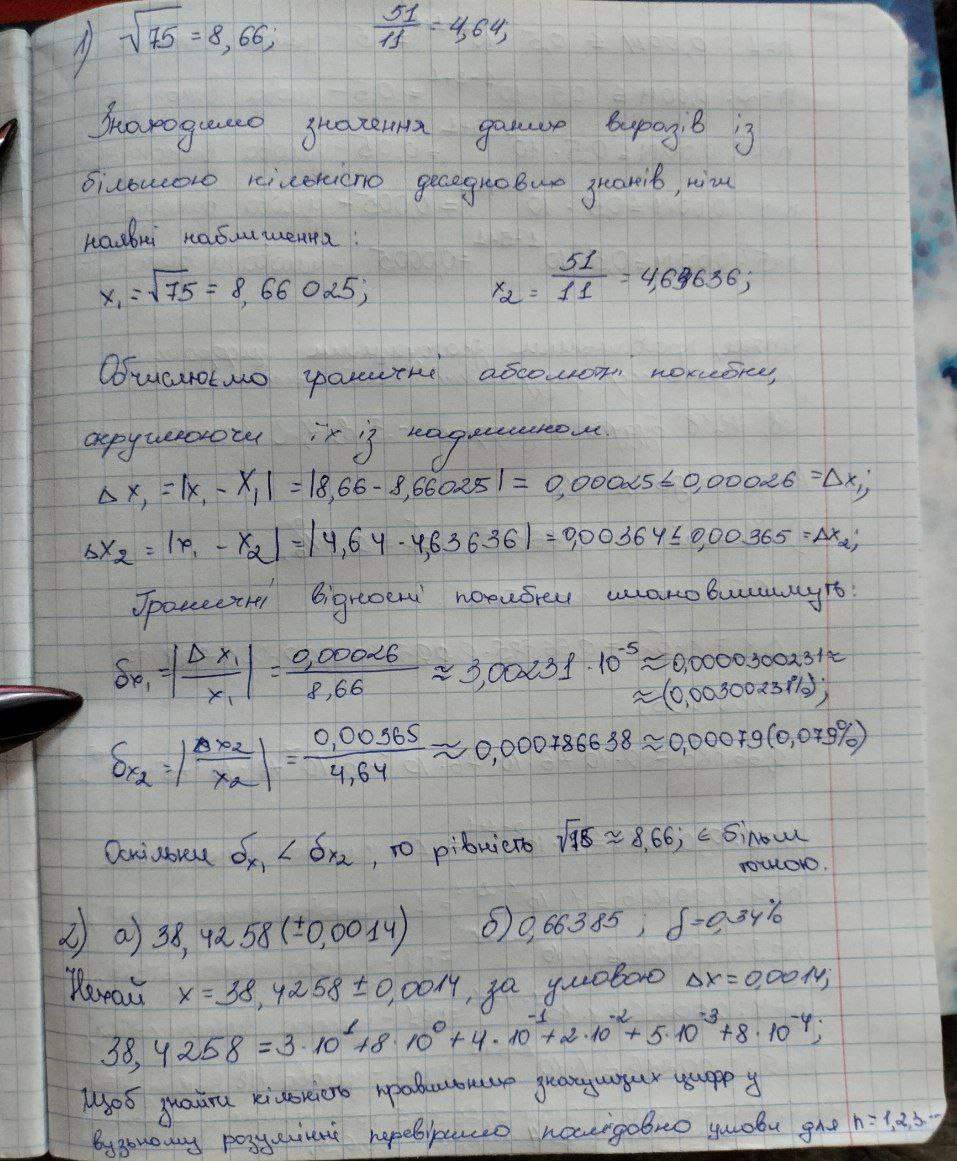 1) √75 = 8,66; 51/11 = 4,64;
Знаходимо значення даних виразів із
більшою кількістю десяткових знаків, ніж
наявні наближення:
x₁ = √75 = 8,66025; x₂ = 51/11 = 4,63636;
Обчислюємо граничні абсолютні похибки,
округлюючи їх із надлишком.
Δx₁ = |x₁ - X₁| = |8,66 - 8,66025| = 0,00025 ≤ 0,00026 = Δx₁;
Δx₂ = |x₁ - X₂| = |4,64 - 4,63636| = 0,00364 ≤ 0,00365 = Δx₂;
Граничні відносні похибки становитимуть:
δx₁ = |Δx₁/x₁| = 0,00026/8,66 ≈ 3,00231 · 10⁻⁵ ≈ 0,0000300231 ≈
≈ (0,00300231%);
δx₂ = |Δx₂/x₂| = 0,00365/4,64 ≈ 0,000786638 ≈ 0,00079 (0,079%)
Оскільки δx₁ < δx₂, то рівність √75 ≈ 8,66; є більш
точною.
2) а) 38,4258(±0,0014) б) 0,66385; δ = 0,34%
Нехай x = 38,4258 ± 0,0014, за умовою Δx = 0,0014;
38,4258 = 3·10¹ + 8·10⁰ + 4·10⁻¹ + 2·10⁻² + 5·10⁻³ + 8·10⁻⁴;
Щоб знайти кількість правильних значущих цифр у
вузькому розумінні перевіримо послідовно умови для n = 1,2,3...